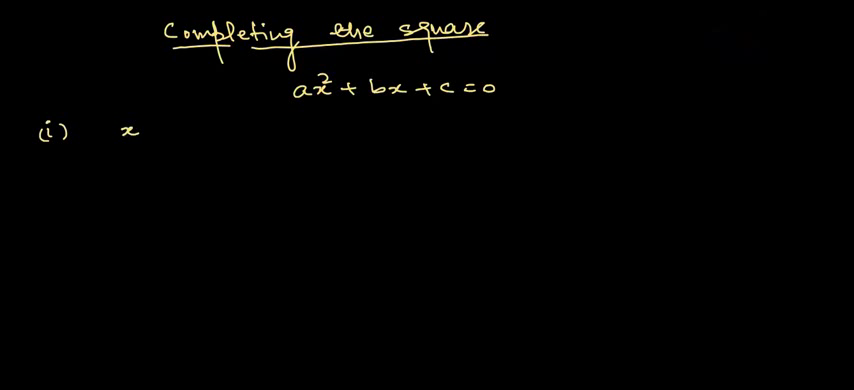 Completing the square
ax² + bx + c = 0
(i) x